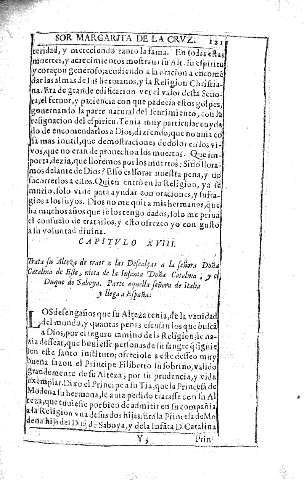 SOR MARGARITA DE LA CRVZ. 121
teridad, y mereciendo tanto la fama. En todas estas
muertes, y acaecimientos mostraua su Alt. su espiritu
y coraçon generoso, acudiendo a la oracion a encomẽ
dar las almas de sus hermanos, y la Religion Christia-
na. Era de grande edificacion ver el valor desta Seño-
ra, el feruor, y paciencia con que padecia estos golpes,
gouernando la parte natural del sentimiento, con la
resignacion del espiritu. Tenia muy particular cuyda
do de encomendarlos a Dios, diziendo, que no auia co
sa mas inutil, que demostraciones de dolor en los vi-
uos, que no eran de prouecho a los muertos. Que im-
porta, dezia, que lloremos por los muertos: Si no llora-
mos delante de Dios? Esso es llorar nuestra pena, y no
socorrerlos a ellos. Quien entrò en la Religion, ya se
murio, solo viue para ayudar con oraciones, y sufra-
gios a los suyos. Dios no me quita mis hermanos, que
ha muchos años que se los tengo dados, solo me priua
el consuelo de tratarlos, y esto ofrezco yo con gusto
a su voluntad diuina.
CAPITVLO XVIII.
Trata su Alteza de traer a las Descalças a la señora Doña
Catalina de Este, nieta de la Infanta Doña Catalina, y el
Duque de Saboya. Parte aquella señora de Italia
y llega a España.
LOS desengaños que su Alteza tenia, de la vanidad
del mundo, y quantas penas escusan los que buscã
a Dios, por el seguro camino de la Religion, de na-
dia dessear, que huuiesse personas de su sangre q̃ siguies-
sen este santo instituto; ofreciole a este desseo muy
buena traza el Principe Filiberto su sobrino, valido
grandemente de su Alteza, por su prudencia, y vida
exemplar. Dixo el Principe a su Tia, que la Princesa de
Modena su hermana, le auia pedido tratasse con su Al
teza, que tuuiesse por bien de admitir en su compañia,
a la Religion vna de sus dos hijas. Era la Princesa de Mo
dena hija del Duq̃ de Saboya, y de la Infãta D. Catalina
V 5 Prin